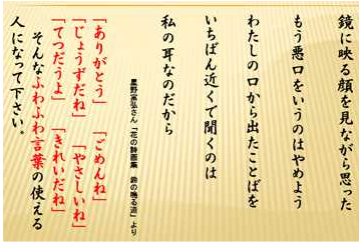 鏡に映る顔を見ながら思った
もう悪口をいうのはやめよう
わたしの口から出たことばを
いちばん近くで聞くのは
私の耳なのだから
星野富弘さん「花の詩画集　鈴の鳴る道」より
「ありがとう」　「ごめんね」
「じょうずだね」　「やさしいね」
「てつだうよ」　「きれいだね」
そんなふわふわ言葉の使える
人になって下さい。